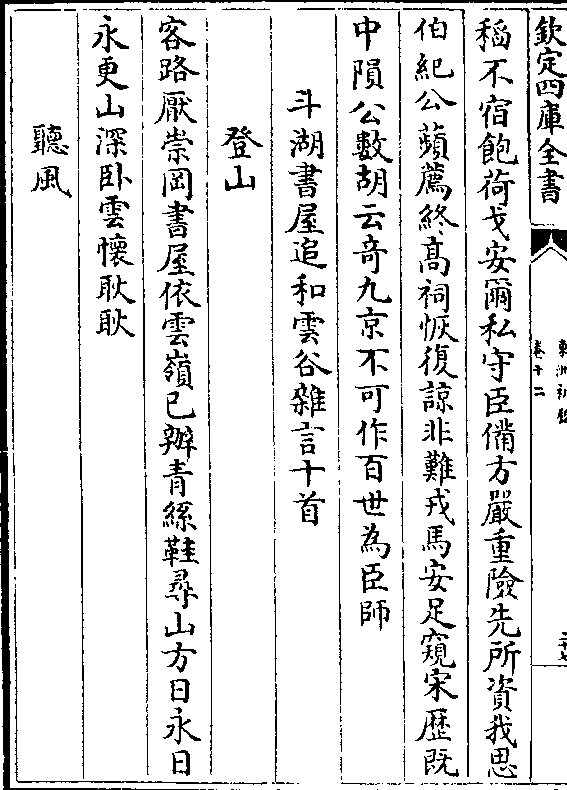 欽定四庫全書
卷十二
稻不宿飽荷戈安爾私守臣備方嚴重險先所資我思
伯紀公蘋薦終髙祠恢復諒非難戎馬安足窺宋歴既
中隕公數胡云竒九京不可作百世為臣師
斗湖書屋追和雲谷雜言十首
登山
客路厭崇岡書屋依雲嶺已辦青絲鞋尋山方日永日
永更山深卧雲懷耿耿
聽風